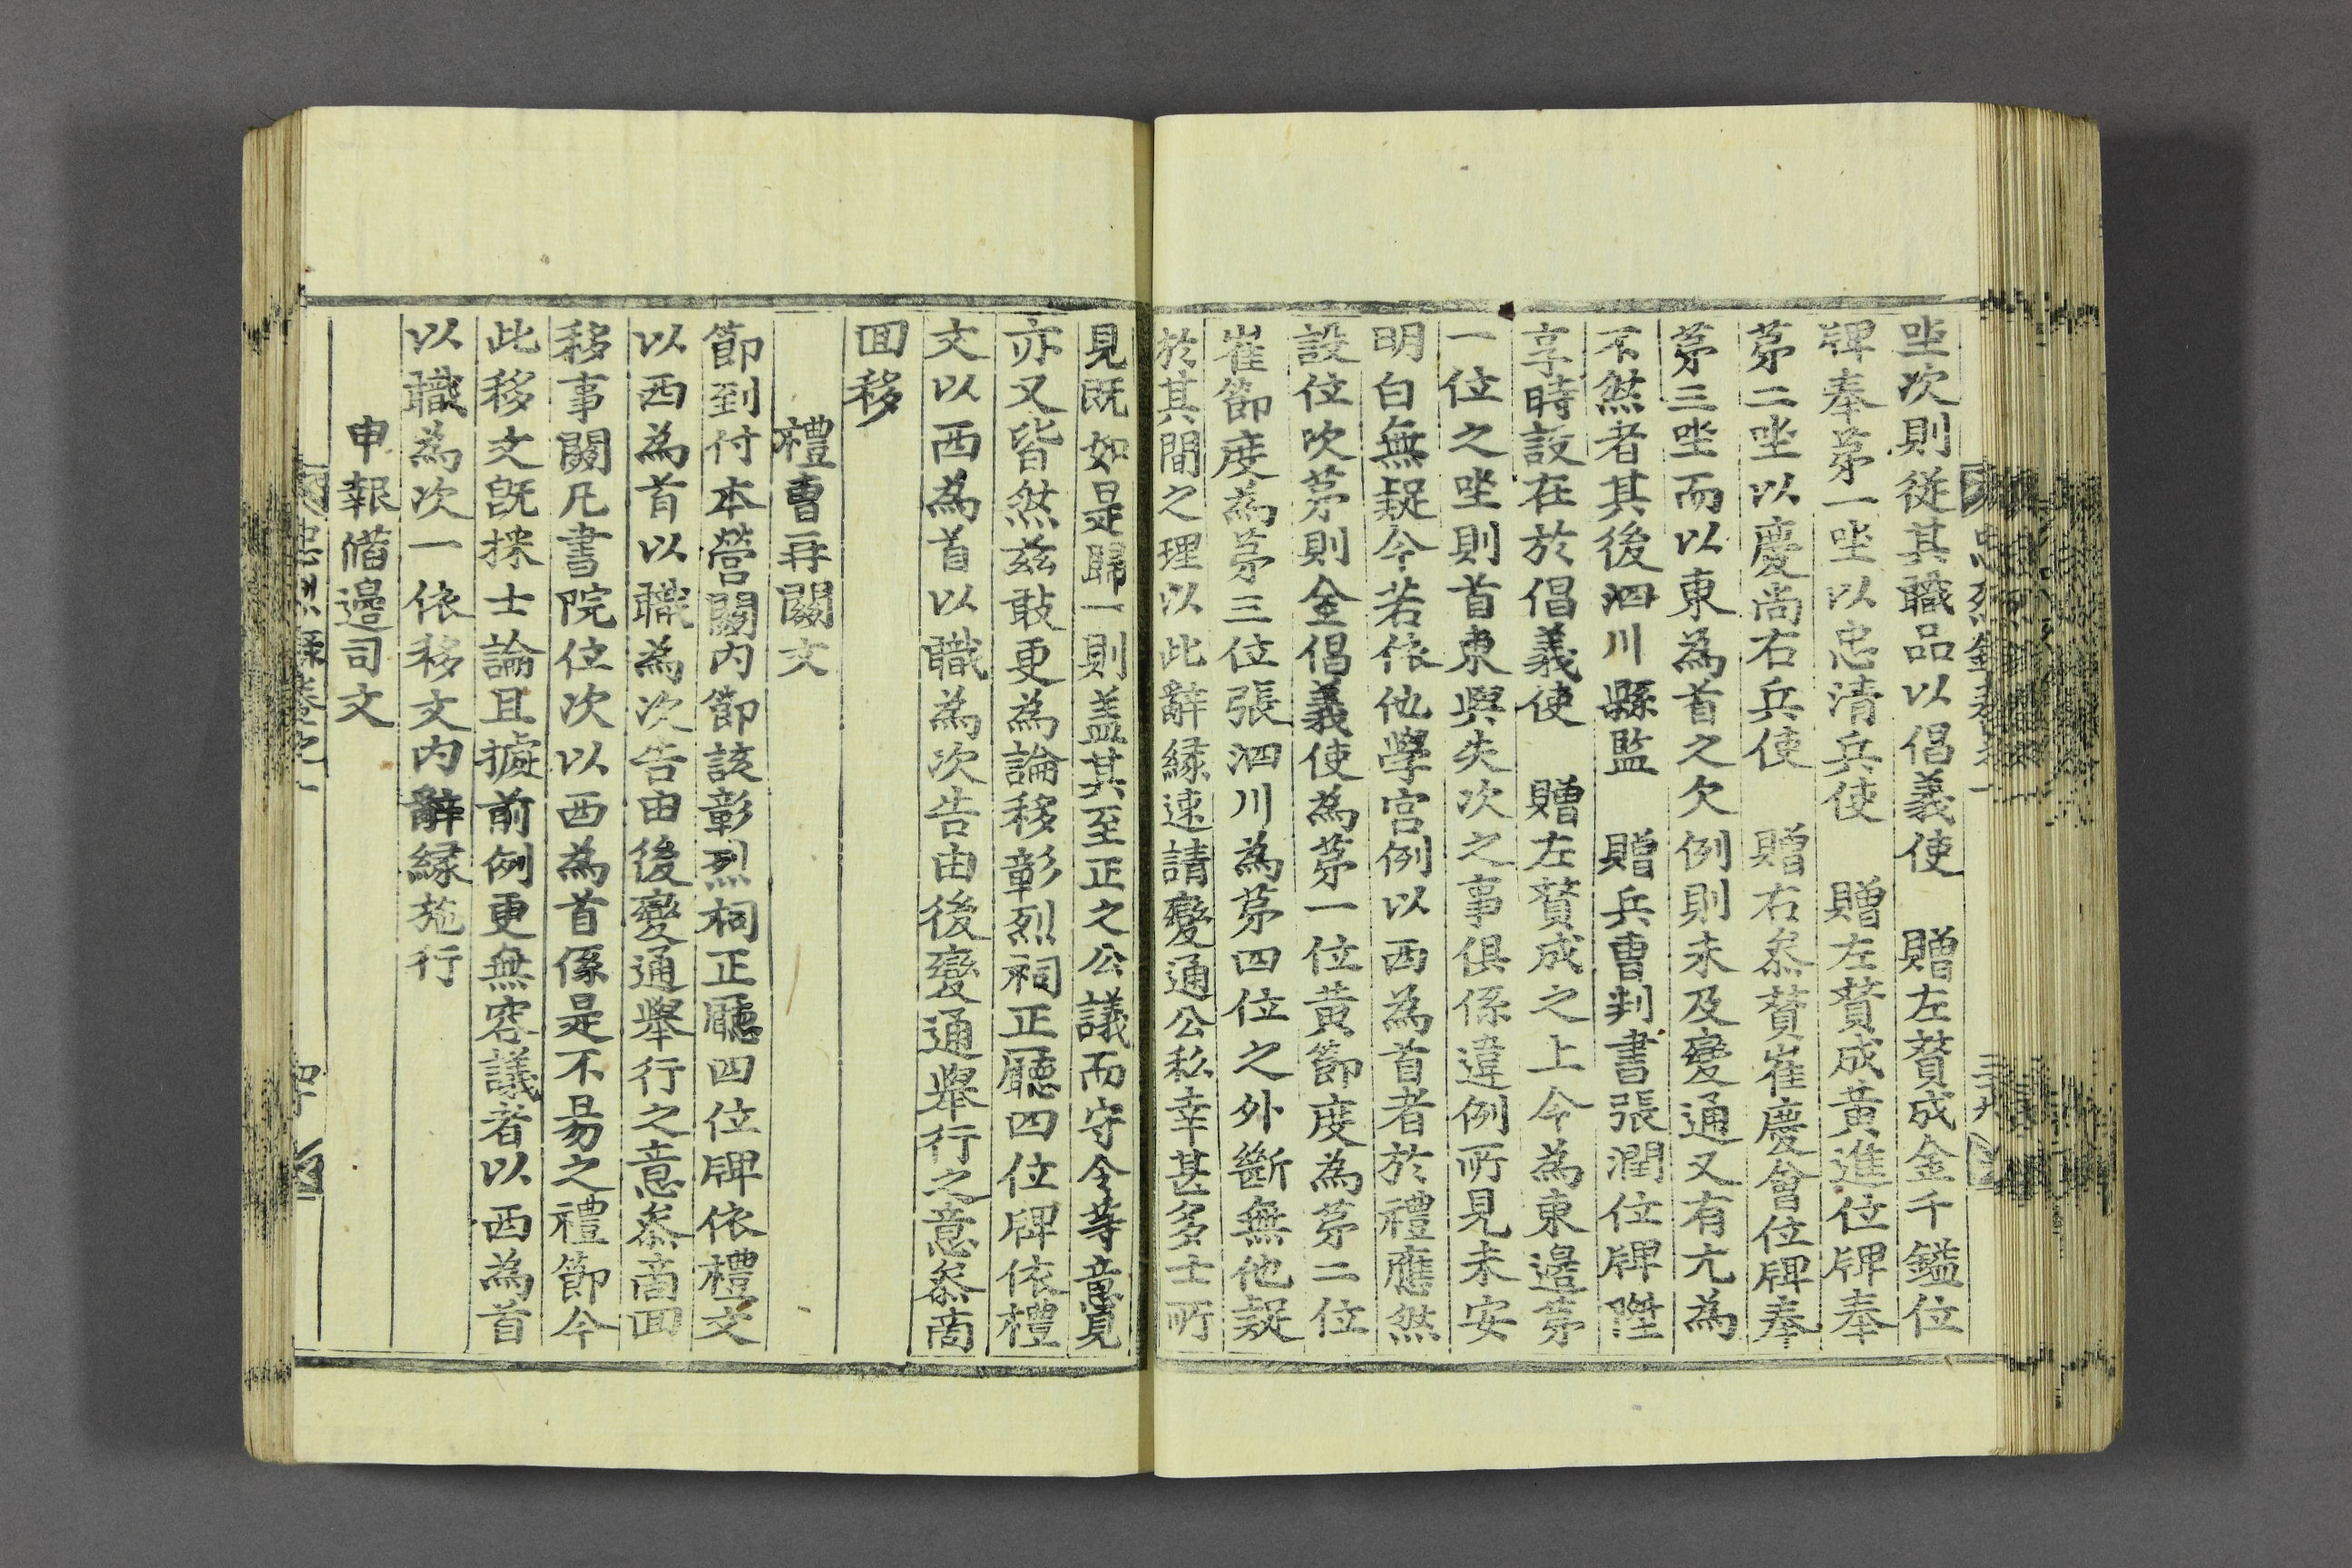 坐次則從其職品以倡義使　贈左賛成金千鎰位
牌奉苐一坐以忠清兵使　贈左賛成黃進位牌奉
苐二坐以慶尚右兵使　贈右叅賛崔慶會位牌奉
苐三坐而以東為首之欠例則未及變通又有尤為
不然者其後泗川縣監　贈兵曹判書張潤位牌陞
享時設在於倡義使　贈左賛成之上今為東邉苐
一位之坐則首東與失次之事俱係違例所見未安
明白無疑今若依他學宮例以西為首者於禮應然
設位次苐則金倡義使為苐一位黃節度為苐二位
崔節度為苐三位張泗川為苐四位之外斷無他疑
於其間之理以此辭縁速請變通公私幸甚多士所
見既如是歸一則盖其至正之公議而守令等意見
亦又皆然兹敢更為論移彰烈祠正廳四位牌依禮
文以西為首以職為次告由後變通舉行之意叅商
回移
禮曹再關文
節到付本營關内節該彰烈祠正廳四位牌依禮文
以西為首以職為次告由後變通舉行之意叅商回
移事關凡書院位次以西為首係是不易之禮節今
此移文旣採士論且據前例更無容議者以西為首
以職為次一依移文内辭縁施行
申報備邉司文